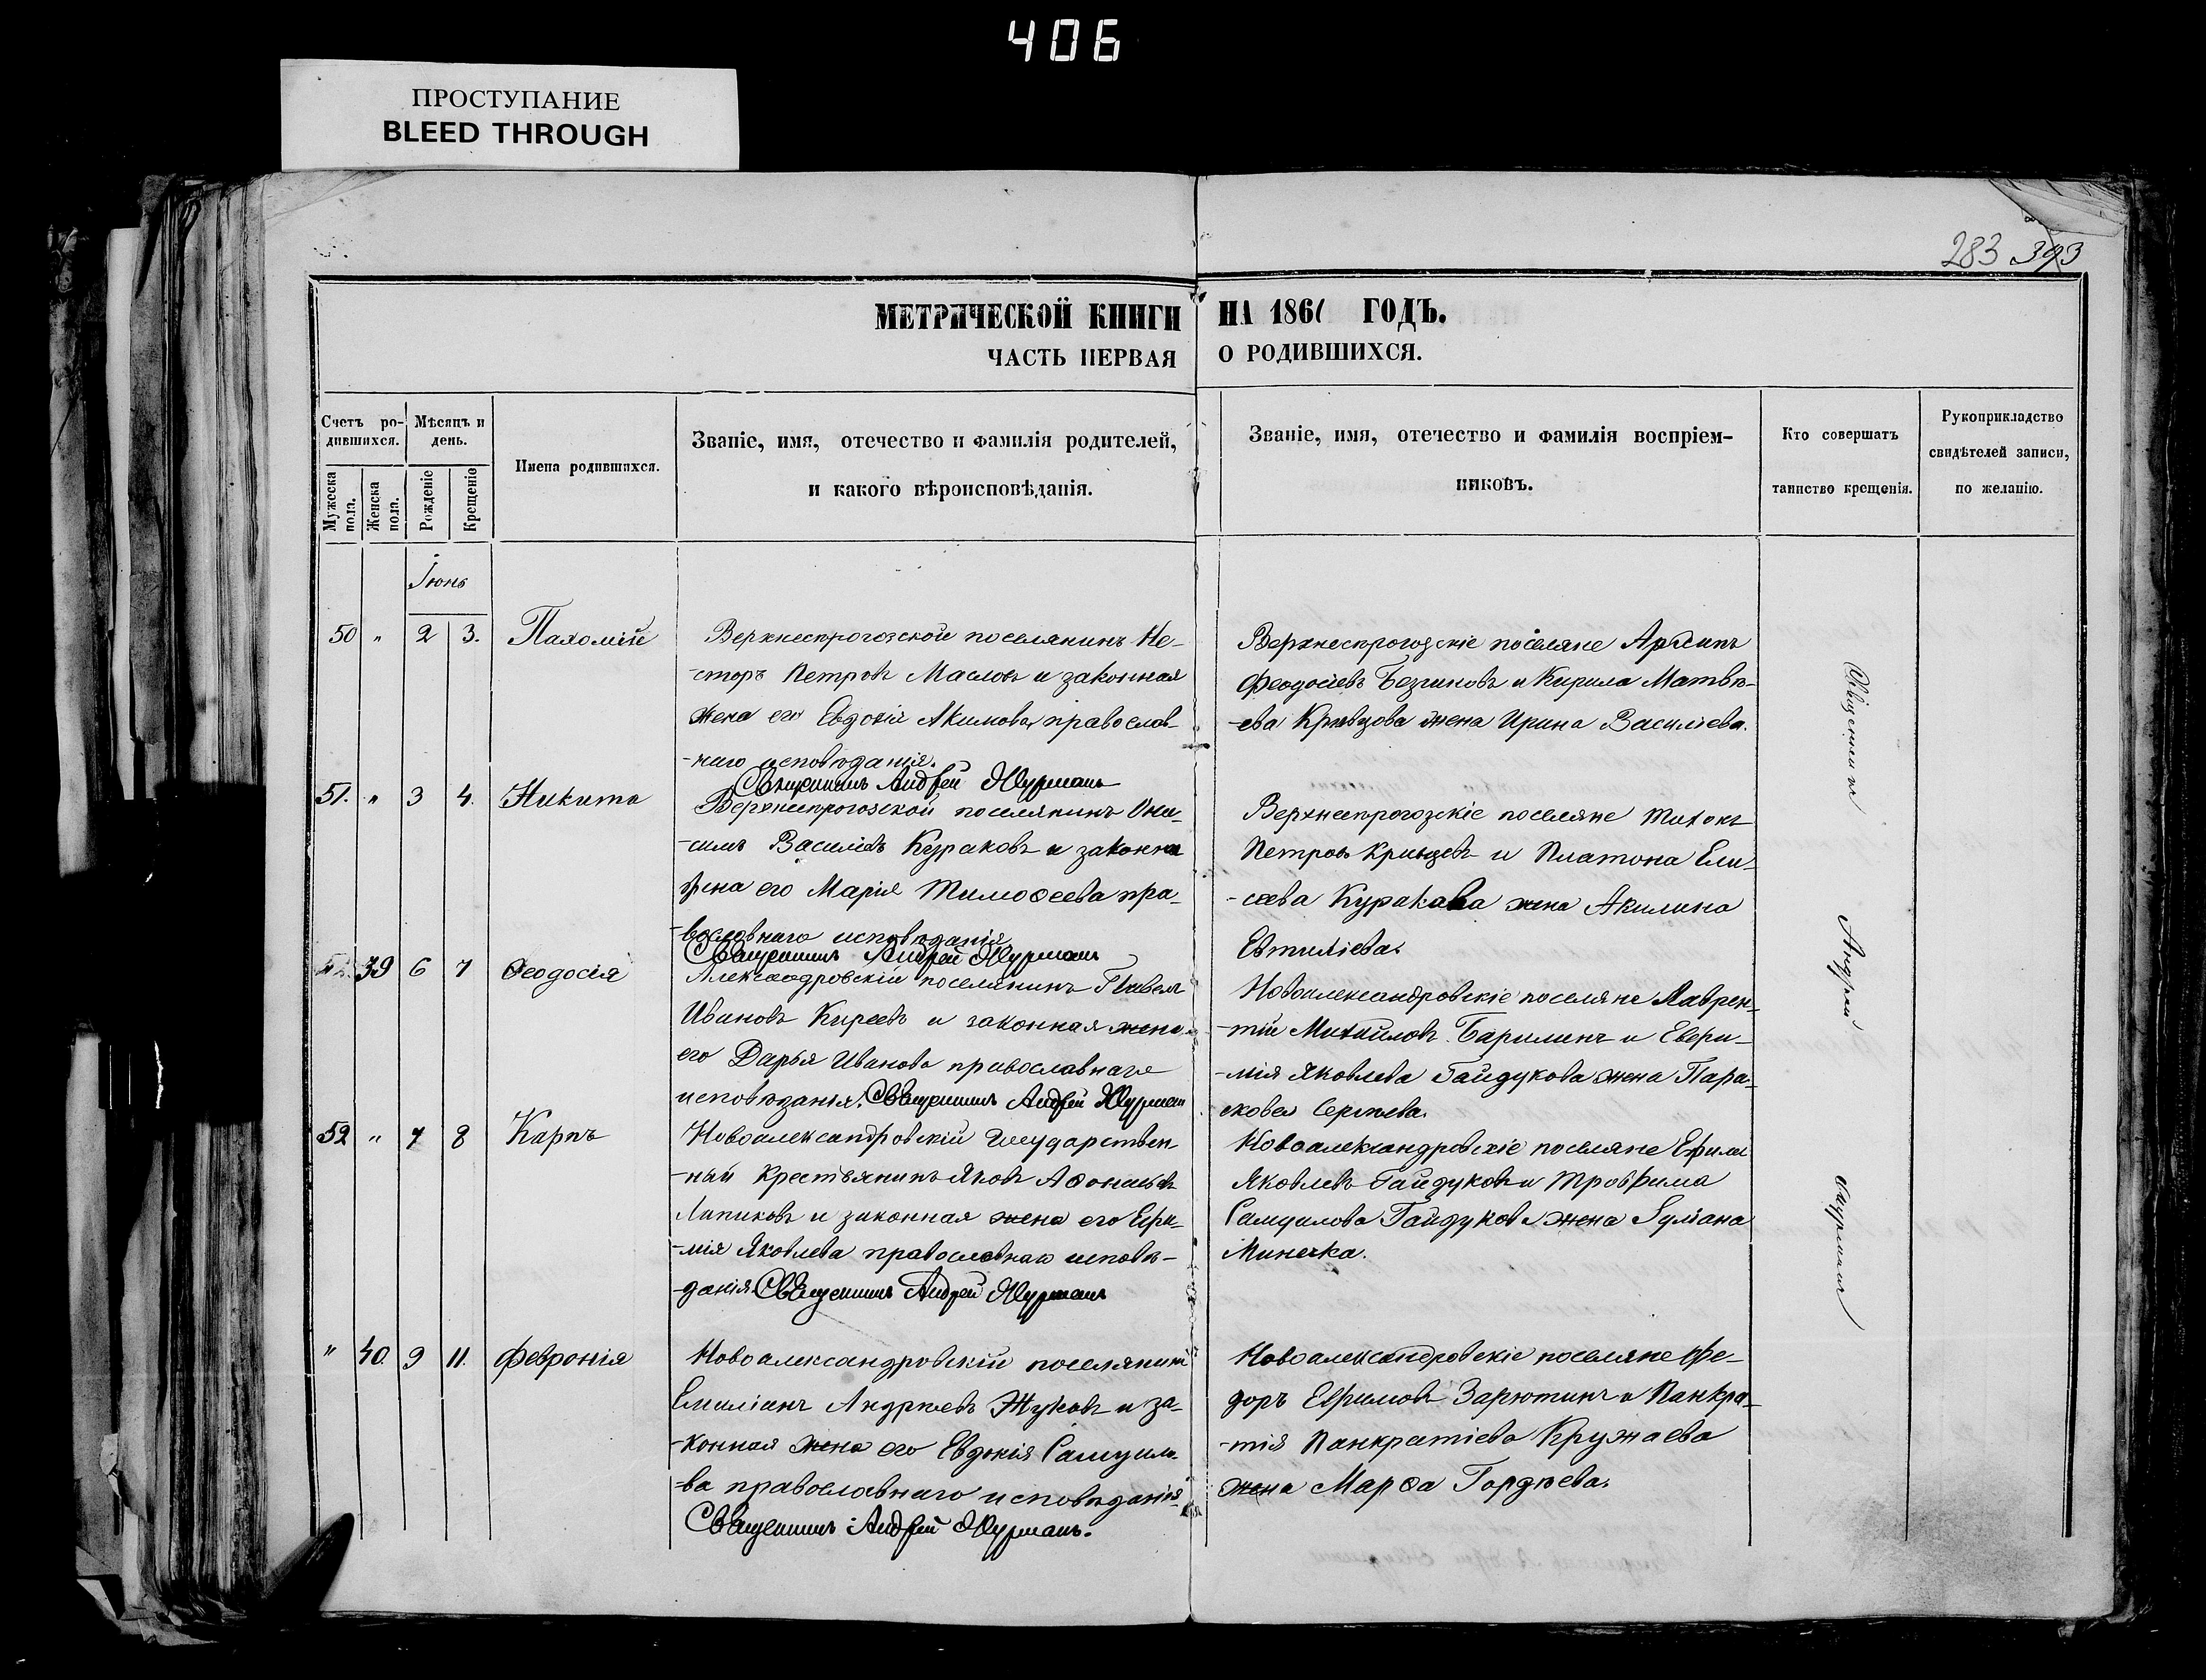 406
ПРОСТУПАНИЕ
BLEED THROUGH
283 393
МЕТРИЧЕСКОЙ КНИГИ НА 1861 ГОДЪ.
ЧАСТЬ ПЕРВАЯ О РОДИВШИХСЯ.
Счетъ ро-
дившихся.
Мужеска пола.
Женска пола.
Мѣсяцъ и
день.
Рожденіе
Крещеніе
Имена родившихся.
Званіе, имя, отечество и фамилія родителей,
и какого вѣроисповѣданія.
Званіе, имя, отечество и фамилія воспріем-
никовъ.
Кто совершатъ
таинство крещенія.
Рукоприкладство
свидѣтелей записи,
по желанію.
Іюнь
50 " 2 3. Пахомій
Верхнерогозской поселянинъ Не-
-сторъ Петровъ Масловъ и законная
жена его Евдокія Акимова православ-
-наго исповѣданія.
Священникъ Андрей Мурманъ
Верхнерогозскіе поселяне Архипъ
Феодосіевъ Безгиновъ и Кирила Матвѣ-
-ева Кривцова жена Ирина Василіева.
51. " 3 4. Никита
Верхнерогозской поселянинъ Они-
-симъ Василіевъ Кураковъ и законна
жена его Марія Тимоѳеева пра-
-вославнаго исповѣданія
Священникъ Андрей Мурманъ
Верхнерогозскіе поселяне Тихонъ
Петровъ и Платона Ели-
-сеева Куракова жена Акилина
Евтиліева.
39 6 7 Ѳеодосія
Александровскій поселянинъ Павелъ
Ивановъ Киреевъ и законная жена
его Дарья Иванова православнаго
исповѣданія. Священникъ Андрей Мурман
Новоалександровскіе поселяне Лаврен-
-тій Михайловъ Барилинъ и Евфи-
-мія Яковлева Гайдукова жена Пара-
сковея Сергѣева.
52 " 7 8 Карпъ
Новоалександровскій Государствен-
-ный Крестьянинъ Яковъ Аѳонасіевъ
Лапиковъ и законная жена его Ефи-
-мія Яковлева православнаго исповѣ-
-данія Священникъ Андрей Мурманъ
Новоалександровскіе поселяне Ефимъ
Яковлевъ Гайдуковъ и Трофима
Самуилова Гайдукова жена Ѕуліана
Минечка.
" 40. 9 11. Февронія
Новоалександровскій поселянинъ
Емиліанъ Андрѣевъ Жуковъ и за-
-конная жена его Евдокія Самуило-
-ва православнаго исповѣданія
Священникъ Андрей Мурманъ.
Новоалександровскіе поселяне Фе-
доръ Ефимовъ Зарютинъ и Панкра-
-тія Панкратіева Кружаева
жена Марѳа Гордѣева.
Священникъ Андрей Мурманъ